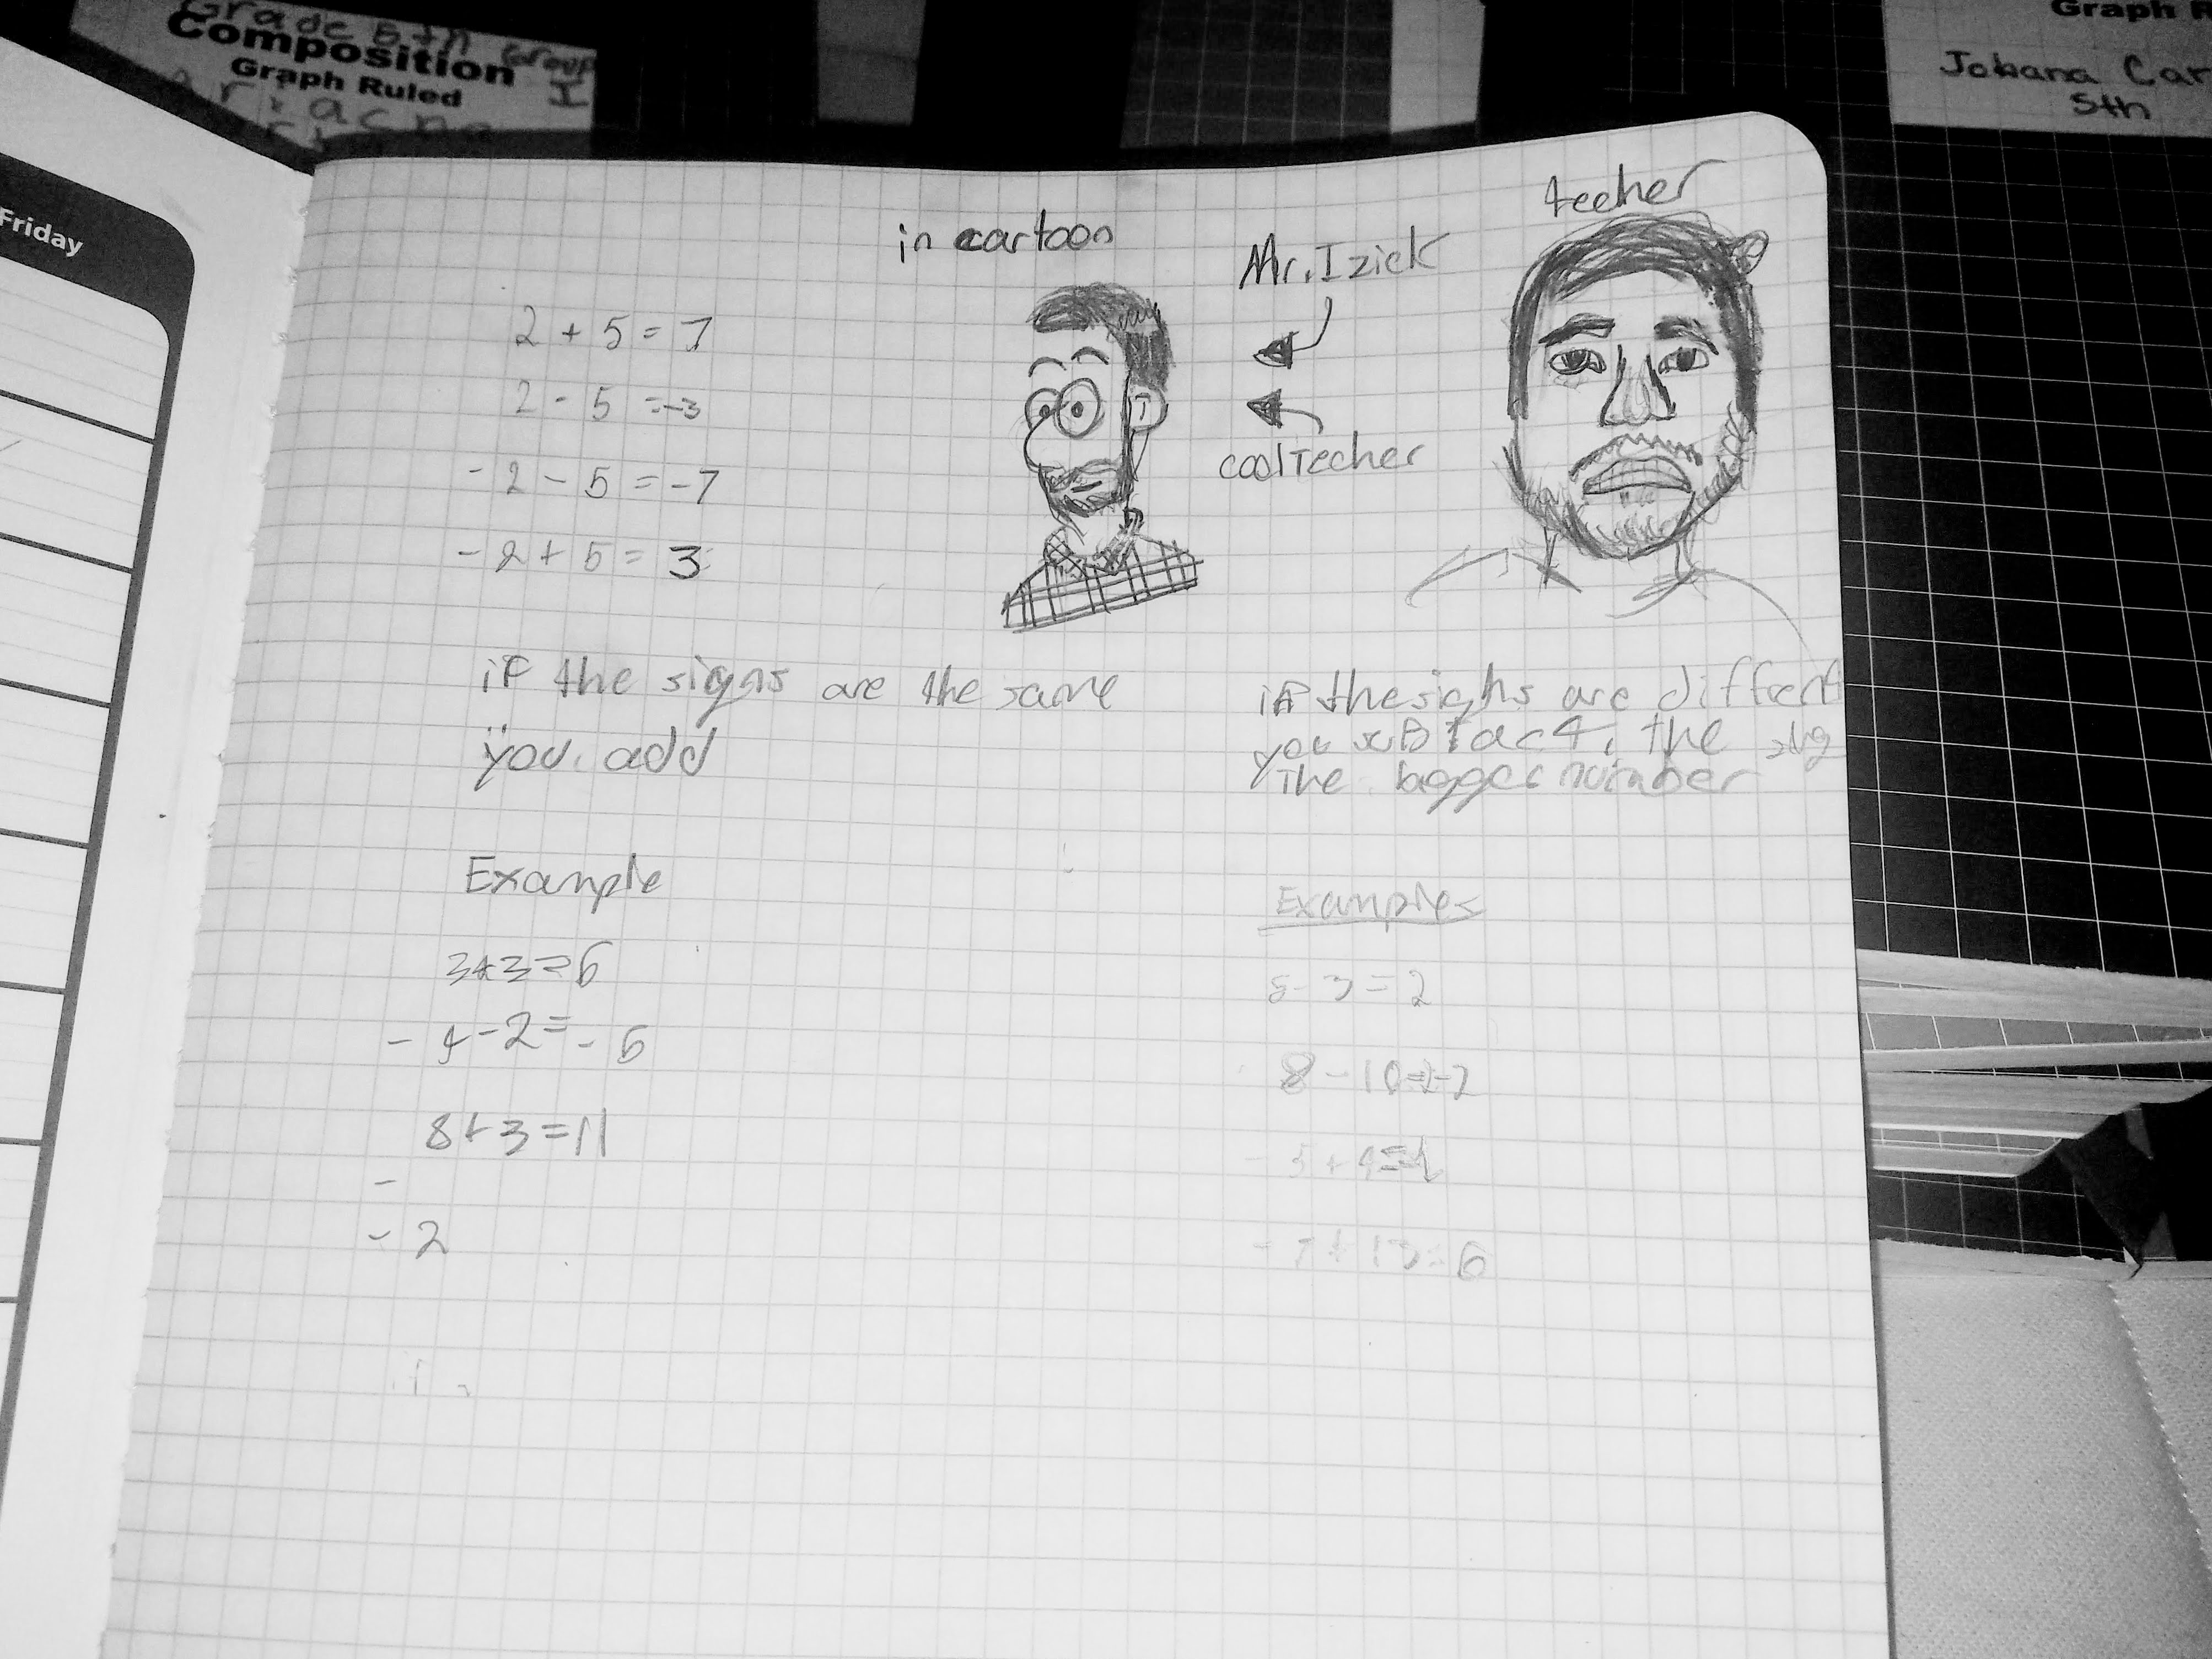 Grade 5th Group
Composition I
Graph Ruled
Graph R
Johana Car
5th
Friday
in cartoon
Mr. Izick
teeher
coolTecher
2 + 5 = 7
2 - 5 = -3
- 2 - 5 = -7
- 2 + 5 = 3
if the signs are the same
you add
if the sighs are diffrent
you suBtact, the
The bigger number
Example
3+3=6
- 4 - 2 = - 6
8+3=11
-
- 2
Examples
5 - 3 = 2
8 - 10 = -2
- 7 + 13 = 6